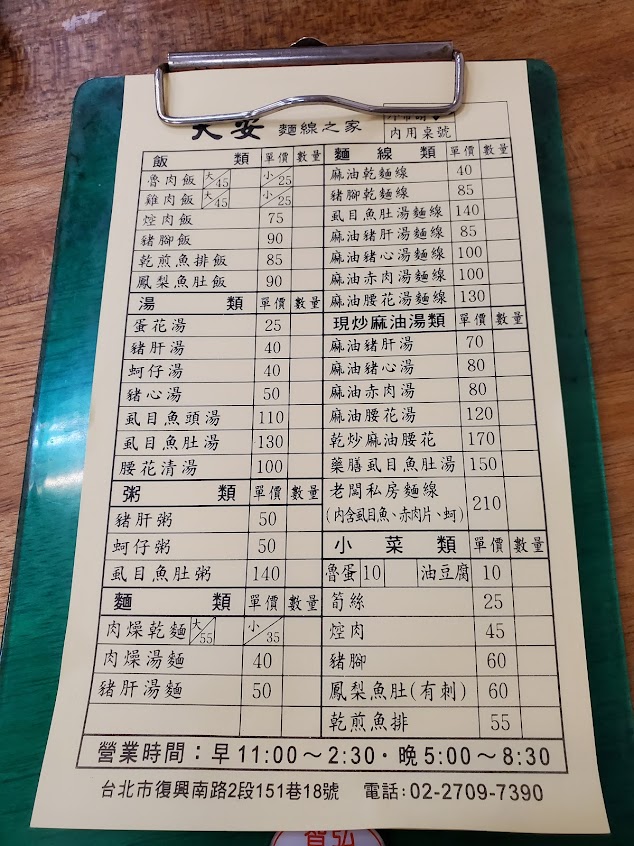 大安 麵線之家
內用桌號
飯 類 單價 數量
魯肉飯 大45 小25
雞肉飯 大45 小25
焢肉飯 75
豬腳飯 90
乾煎魚排飯 85
鳳梨魚肚飯 90
湯 類 單價 數量
蛋花湯 25
豬肝湯 40
蚵仔湯 40
豬心湯 50
虱目魚頭湯 110
虱目魚肚湯 130
腰花清湯 100
粥 類 單價 數量
豬肝粥 50
蚵仔粥 50
虱目魚肚粥 140
麵 類 單價 數量
肉燥乾麵 大55 小35
肉燥湯麵 40
豬肝湯麵 50
麵線類 單價 數量
麻油乾麵線 40
豬腳乾麵線 85
虱目魚肚湯麵線 140
麻油豬肝湯麵線 85
麻油豬心湯麵線 100
麻油赤肉湯麵線 100
麻油腰花湯麵線 130
現炒麻油湯類 單價 數量
麻油豬肝湯 70
麻油豬心湯 80
麻油赤肉湯 80
麻油腰花湯 120
乾炒麻油腰花 170
藥膳虱目魚肚湯 150
老闆私房麵線 210
(內含虱目魚、赤肉片、蚵)
小菜類 單價 數量
魯蛋 10 油豆腐 10
筍絲 25
焢肉 45
豬腳 60
鳳梨魚肚(有刺) 60
乾煎魚排 55
營業時間：早11:00～2:30·晚5:00～8:30
台北市復興南路2段151巷18號 電話:02-2709-7390